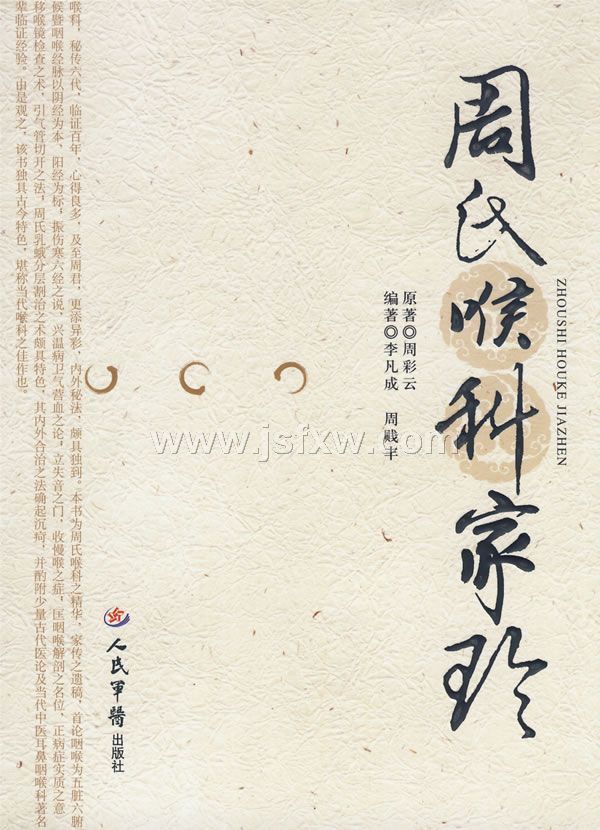 周氏喉科家珍
ZHOUSHI HOUKE JIAZHEN
原著◎周彩云
编著◎李凡成 周贱丰
www.jsfxw.com
人民军医出版社
喉科，秘传六代，临证百年，心得良多，及至周君，更添异彩，内外秘法，颇具独到。本书为周氏喉科之精华，家传之遗稿，首论咽喉为五脏六腑
候暨咽喉经脉以阴经为本，阳经为标；振伤寒六经之说，兴温病卫气营血之论，立失音之门，收慢喉之症；匡咽喉解剖之名位，正病症实质之意
移喉镜检查之术，引气管切开之法，周氏乳蛾分层割治之术颇具特色，其内外合治之法确起沉疴，并酌附少量古代医论及当代中医耳鼻咽喉科著名
辈临证经验。由是观之，该书独具古今特色，堪称当代喉科之佳作也。